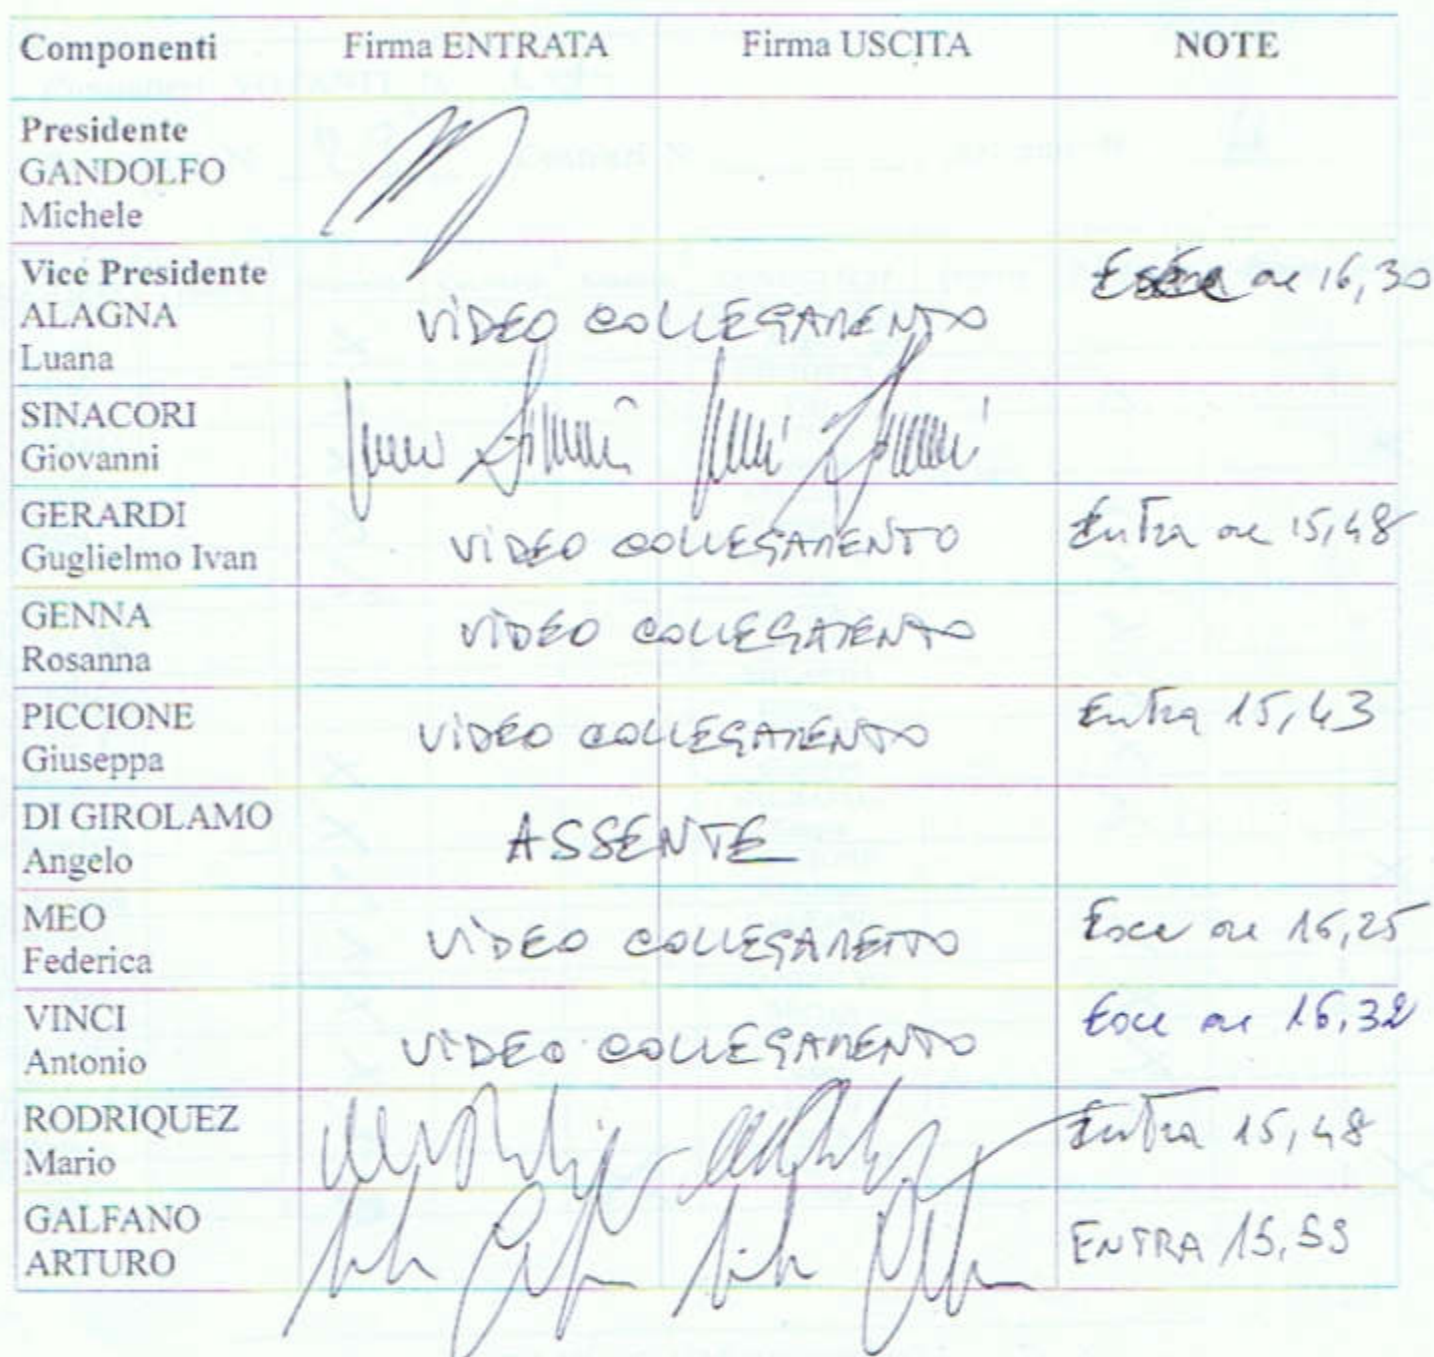 Componenti Firma ENTRATA Firma USCITA NOTE
Presidente
GANDOLFO
Michele
Vice Presidente
ALAGNA
Luana
VIDEO COLLEGAMENTO
ore 16,30
SINACORI
Giovanni
GERARDI
Guglielmo Ivan
VIDEO COLLEGAMENTO
Entra ore 15,48
GENNA
Rosanna
VIDEO COLLEGAMENTO
PICCIONE
Giuseppa
VIDEO COLLEGAMENTO
Entra 15,43
DI GIROLAMO
Angelo
ASSENTE
MEO
Federica
VIDEO COLLEGAMENTO
Esce ore 16,25
VINCI
Antonio
VIDEO COLLEGAMENTO
Esce ore 16,32
RODRIQUEZ
Mario
Entra 15,48
GALFANO
ARTURO
ENTRA